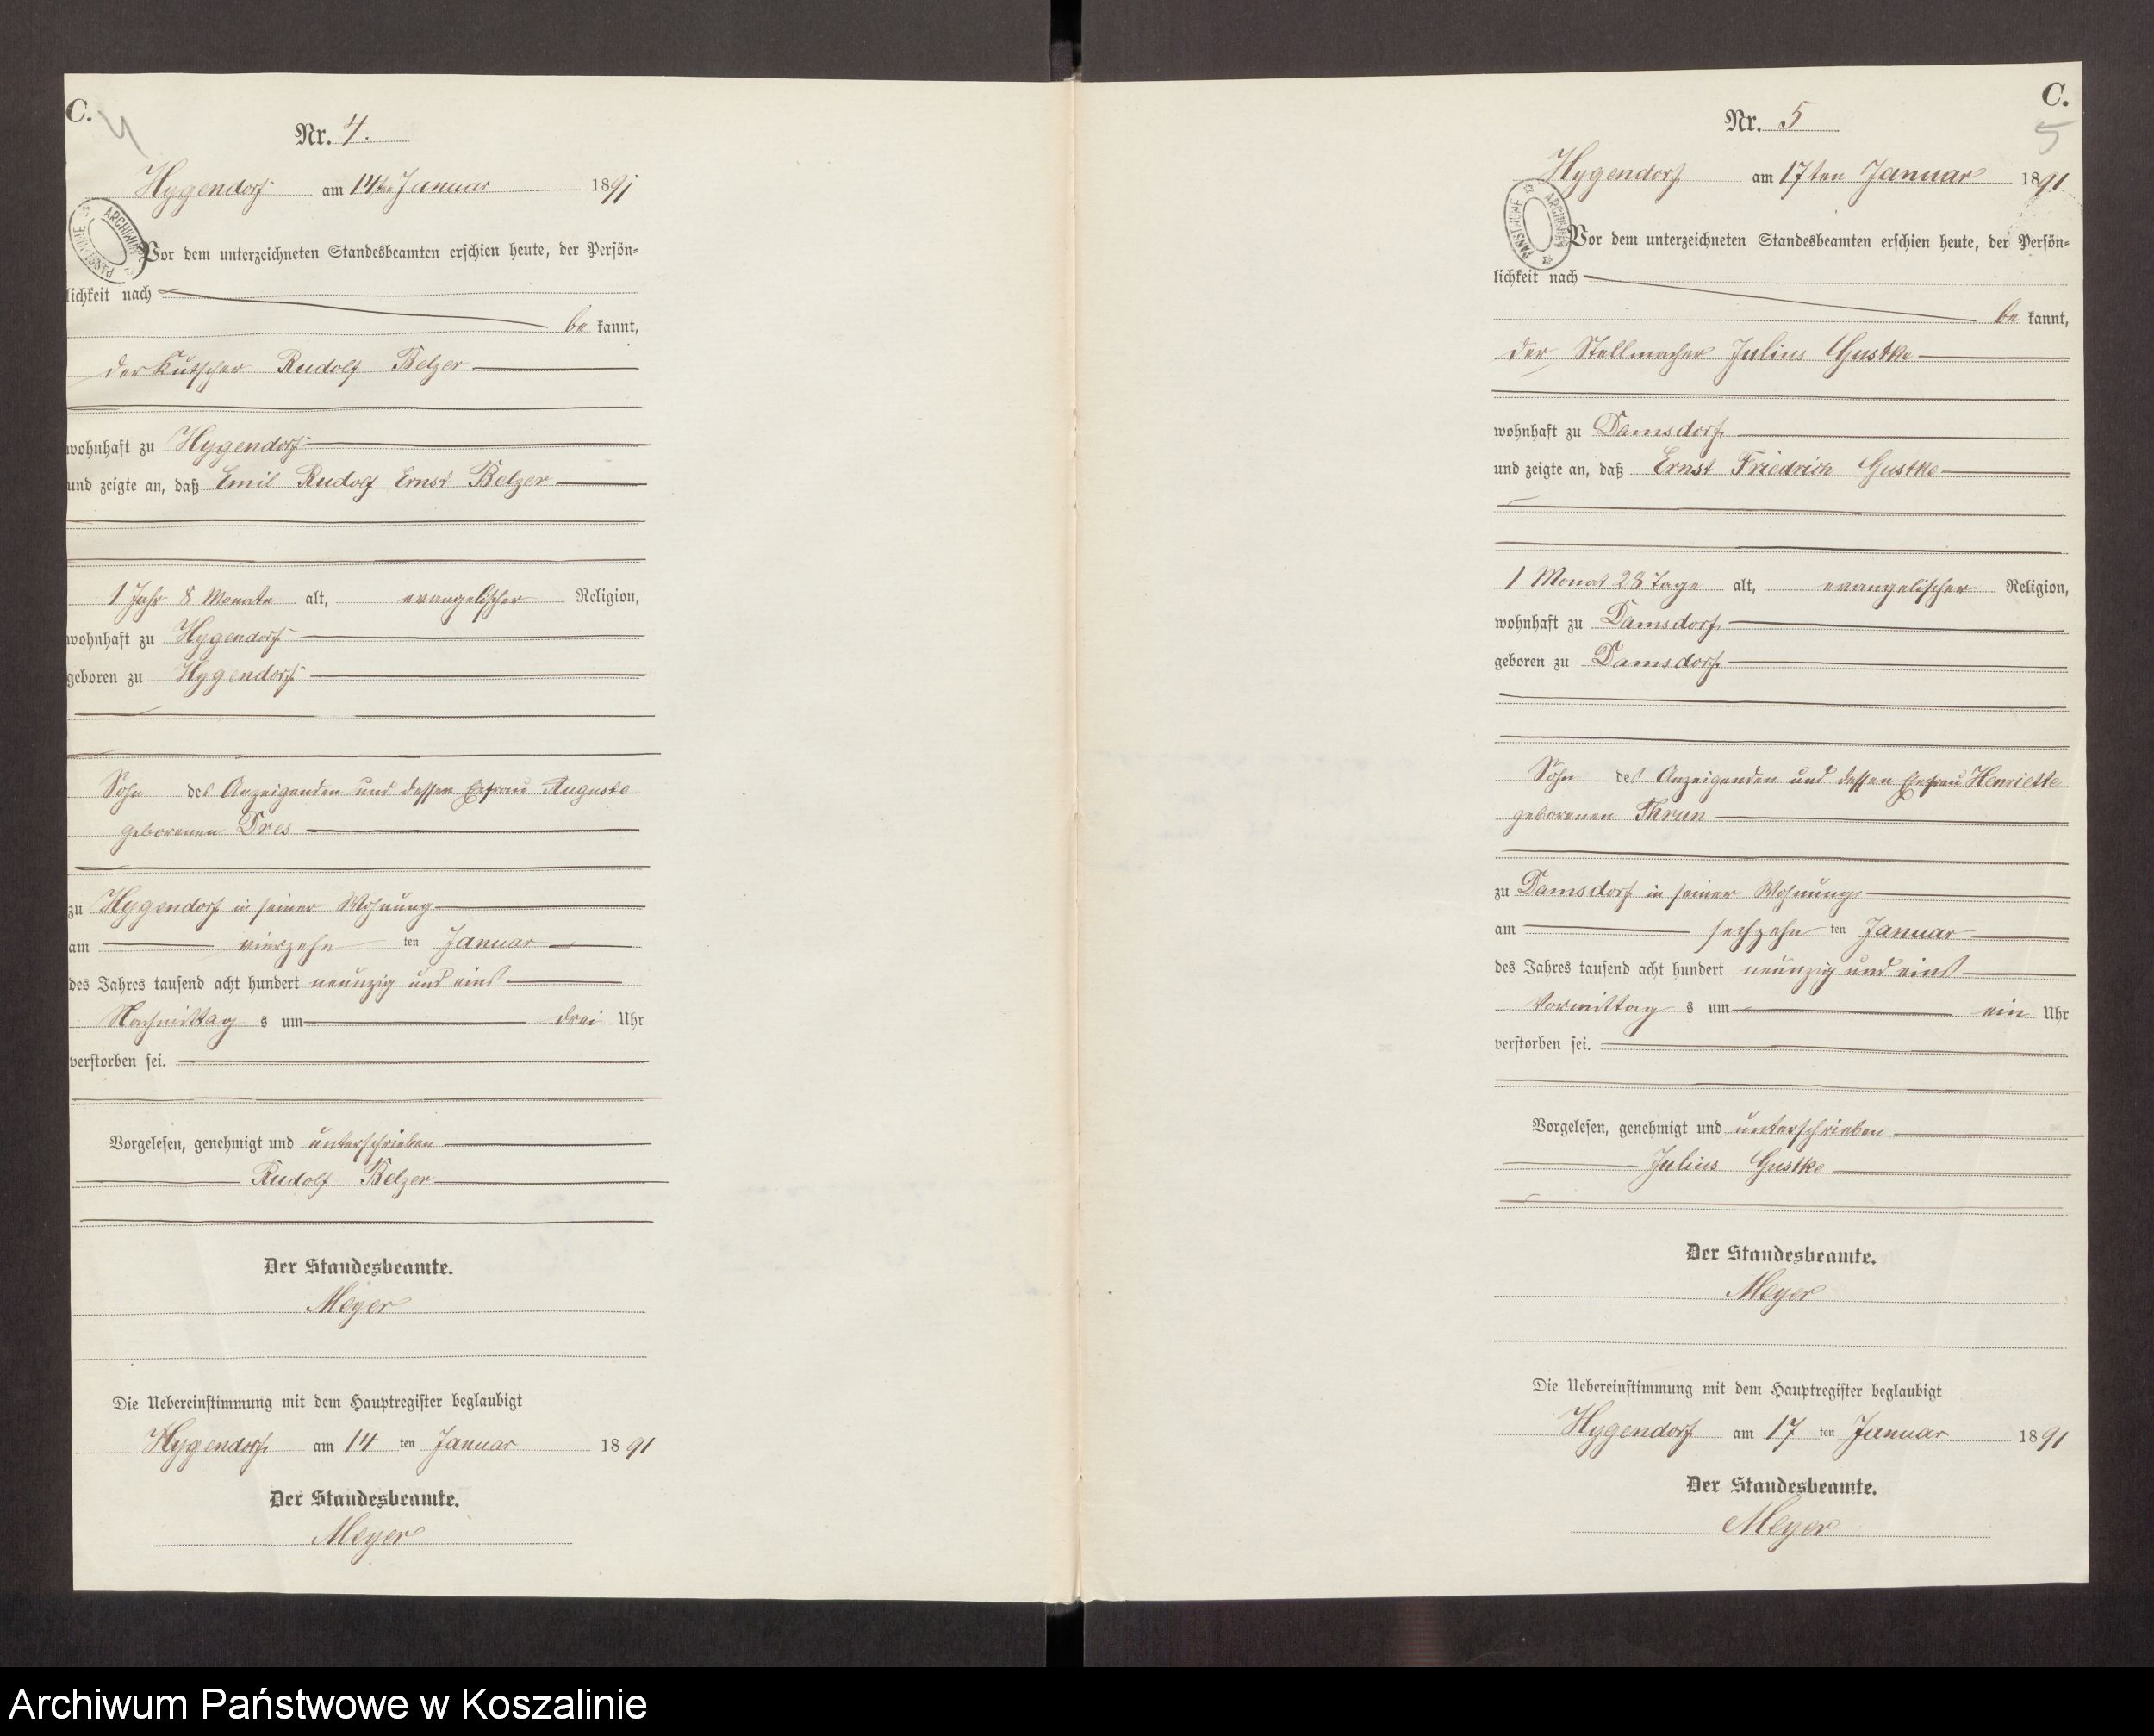 C.
4
Nr. 4.
Hygendorf am 14ten Januar 1891
ARCHIWUM PAŃSTWOWE
Vor dem unterzeichneten Standesbeamten erschien heute, der Persön-
lichkeit nach
be kannt,
der Kutscher Rudolf Belzer
wohnhaft zu Hygendorf
und zeigte an, daß Emil Rudolf Ernst Belzer
1 Jahr 8 Monate alt, evangelischer Religion,
wohnhaft zu Hygendorf
geboren zu Hygendorf
Sohn des Anzeigenden und dessen Ehefrau Auguste
geborenen Dres
zu Hygendorf in seiner Wohnung
am vierzehn ten Januar
des Jahres tausend acht hundert neunzig und eins
Nachmittag s um drei Uhr
verstorben sei.
Vorgelesen, genehmigt und unterschrieben
Rudolf Belzer
Der Standesbeamte.
Meyer
Die Uebereinstimmung mit dem Hauptregister beglaubigt
Hygendorf am 14 ten Januar 1891
Der Standesbeamte.
Meyer
C.
5
Nr. 5
Hygendorf am 17ten Januar 1891
ARCHIWUM PAŃSTWOWE
Vor dem unterzeichneten Standesbeamten erschien heute, der Persön-
lichkeit nach
be kannt,
der Stellmacher Julius Gustke
wohnhaft zu Damsdorf
und zeigte an, daß Ernst Friedrich Gustke
1 Monat 28 Tage alt, evangelischer Religion,
wohnhaft zu Damsdorf
geboren zu Damsdorf
Sohn des Anzeigenden und dessen Ehefrau Henriette
geborenen Thrun
zu Damsdorf in seiner Wohnung
am sechzehn ten Januar
des Jahres tausend acht hundert neunzig und eins
Vormittag s um ein Uhr
verstorben sei.
Vorgelesen, genehmigt und unterschrieben
Julius Gustke
Der Standesbeamte.
Meyer
Die Uebereinstimmung mit dem Hauptregister beglaubigt
Hygendorf am 17 ten Januar 1891
Der Standesbeamte.
Meyer
Archiwum Państwowe w Koszalinie